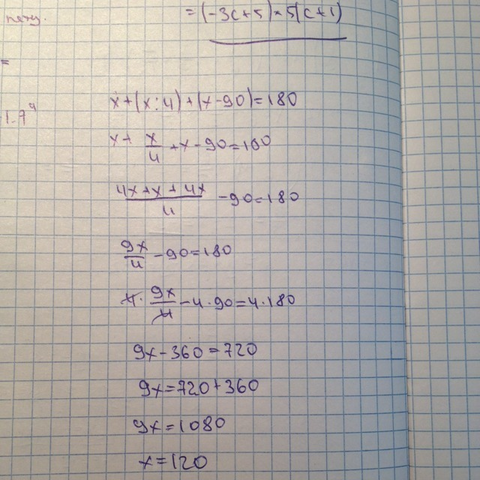 =(-3c+5)·5(c+1)
=
1.7ª
x+(x:4)+(x-90)=180
x+ x/4 +x-90=180
4x+x+4x/4 -90=180
9x/4 -90=180
4· 9x/4 -4·90=4·180
9x-360=720
9x=720+360
9x=1080
x=120